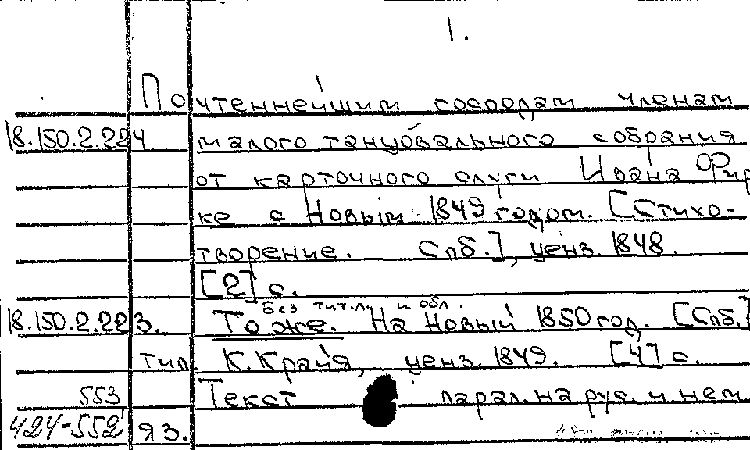 1.
Почтеннейшим господам членам
18.150.2.224 малого танцовального собрания
от карточного слуги Ивана Фир
ке с Новым 1849 годом. [Стихо-
творение. Спб.], ценз. 1848.
[2] с.
без тит. л. и обл.
18.150.2.223. То же. На Новый 1850 год. [Спб.]
тип. К. Крайя, ценз. 1849. [4] с.
553 Текст парал. на рус. и нем.
424-552 яз.